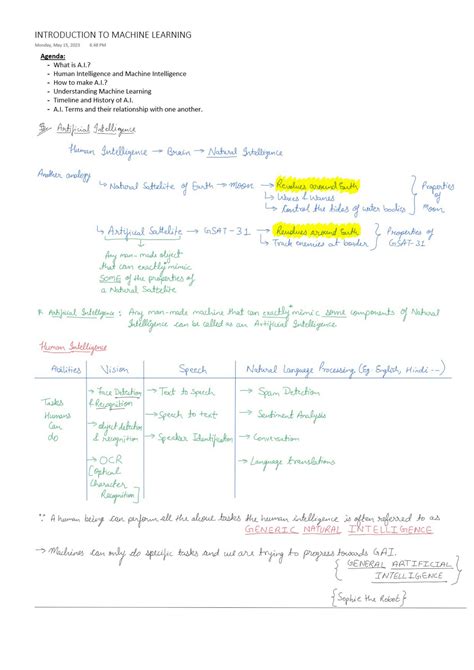 INTRODUCTION TO MACHINE LEARNING
Monday, May 15, 2023 6:48 PM
Agenda:
- What is A.I.?
- Human Intelligence and Machine Intelligence
- How to make A.I.?
- Understanding Machine Learning
- Timeline and History of A.I.
- A.I. Terms and their relationship with one another.
Artificial Intelligence
Human Intelligence → Brain → Natural Intelligence
Another analogy
↳ Natural Sattelite of Earth → Moon → Revolves around Earth
↳ Waxes & Wanes
↳ Control the tides of water bodies
Properties of Moon
↳ Artificial Sattelite → GSAT-31 → Revolves around Earth
↳ Track enemies at border
Properties of GSAT-31
Any man-made object
that can exactly mimic
SOME of the properties of
a Natural Sattelite
Artificial Intelligence : Any man-made machine that can exactly mimic some components of Natural
Intelligence can be called as an Artificial Intelligence.
Human Intelligence
Abilities Vision Speech Natural Language Processing (Eg. English, Hindi ---)
Tasks Humans Can do
→ Face Detection & Recognition
→ object detection & recognition
→ OCR (Optical Character Recognition)
→ Text to Speech
→ Speech to text
→ Speaker Identification
→ Spam Detection
→ Sentiment Analysis
→ Conversation
→ Language translations
∵ A human being can perform all the above tasks the human intelligence is often referred to as
GENERIC NATURAL INTELLIGENCE
→ Machines can only do specific tasks and we are trying to progress towards GAI.
{ GENERAL ARTIFICIAL
INTELLIGENCE }
{Sophie the Robot}